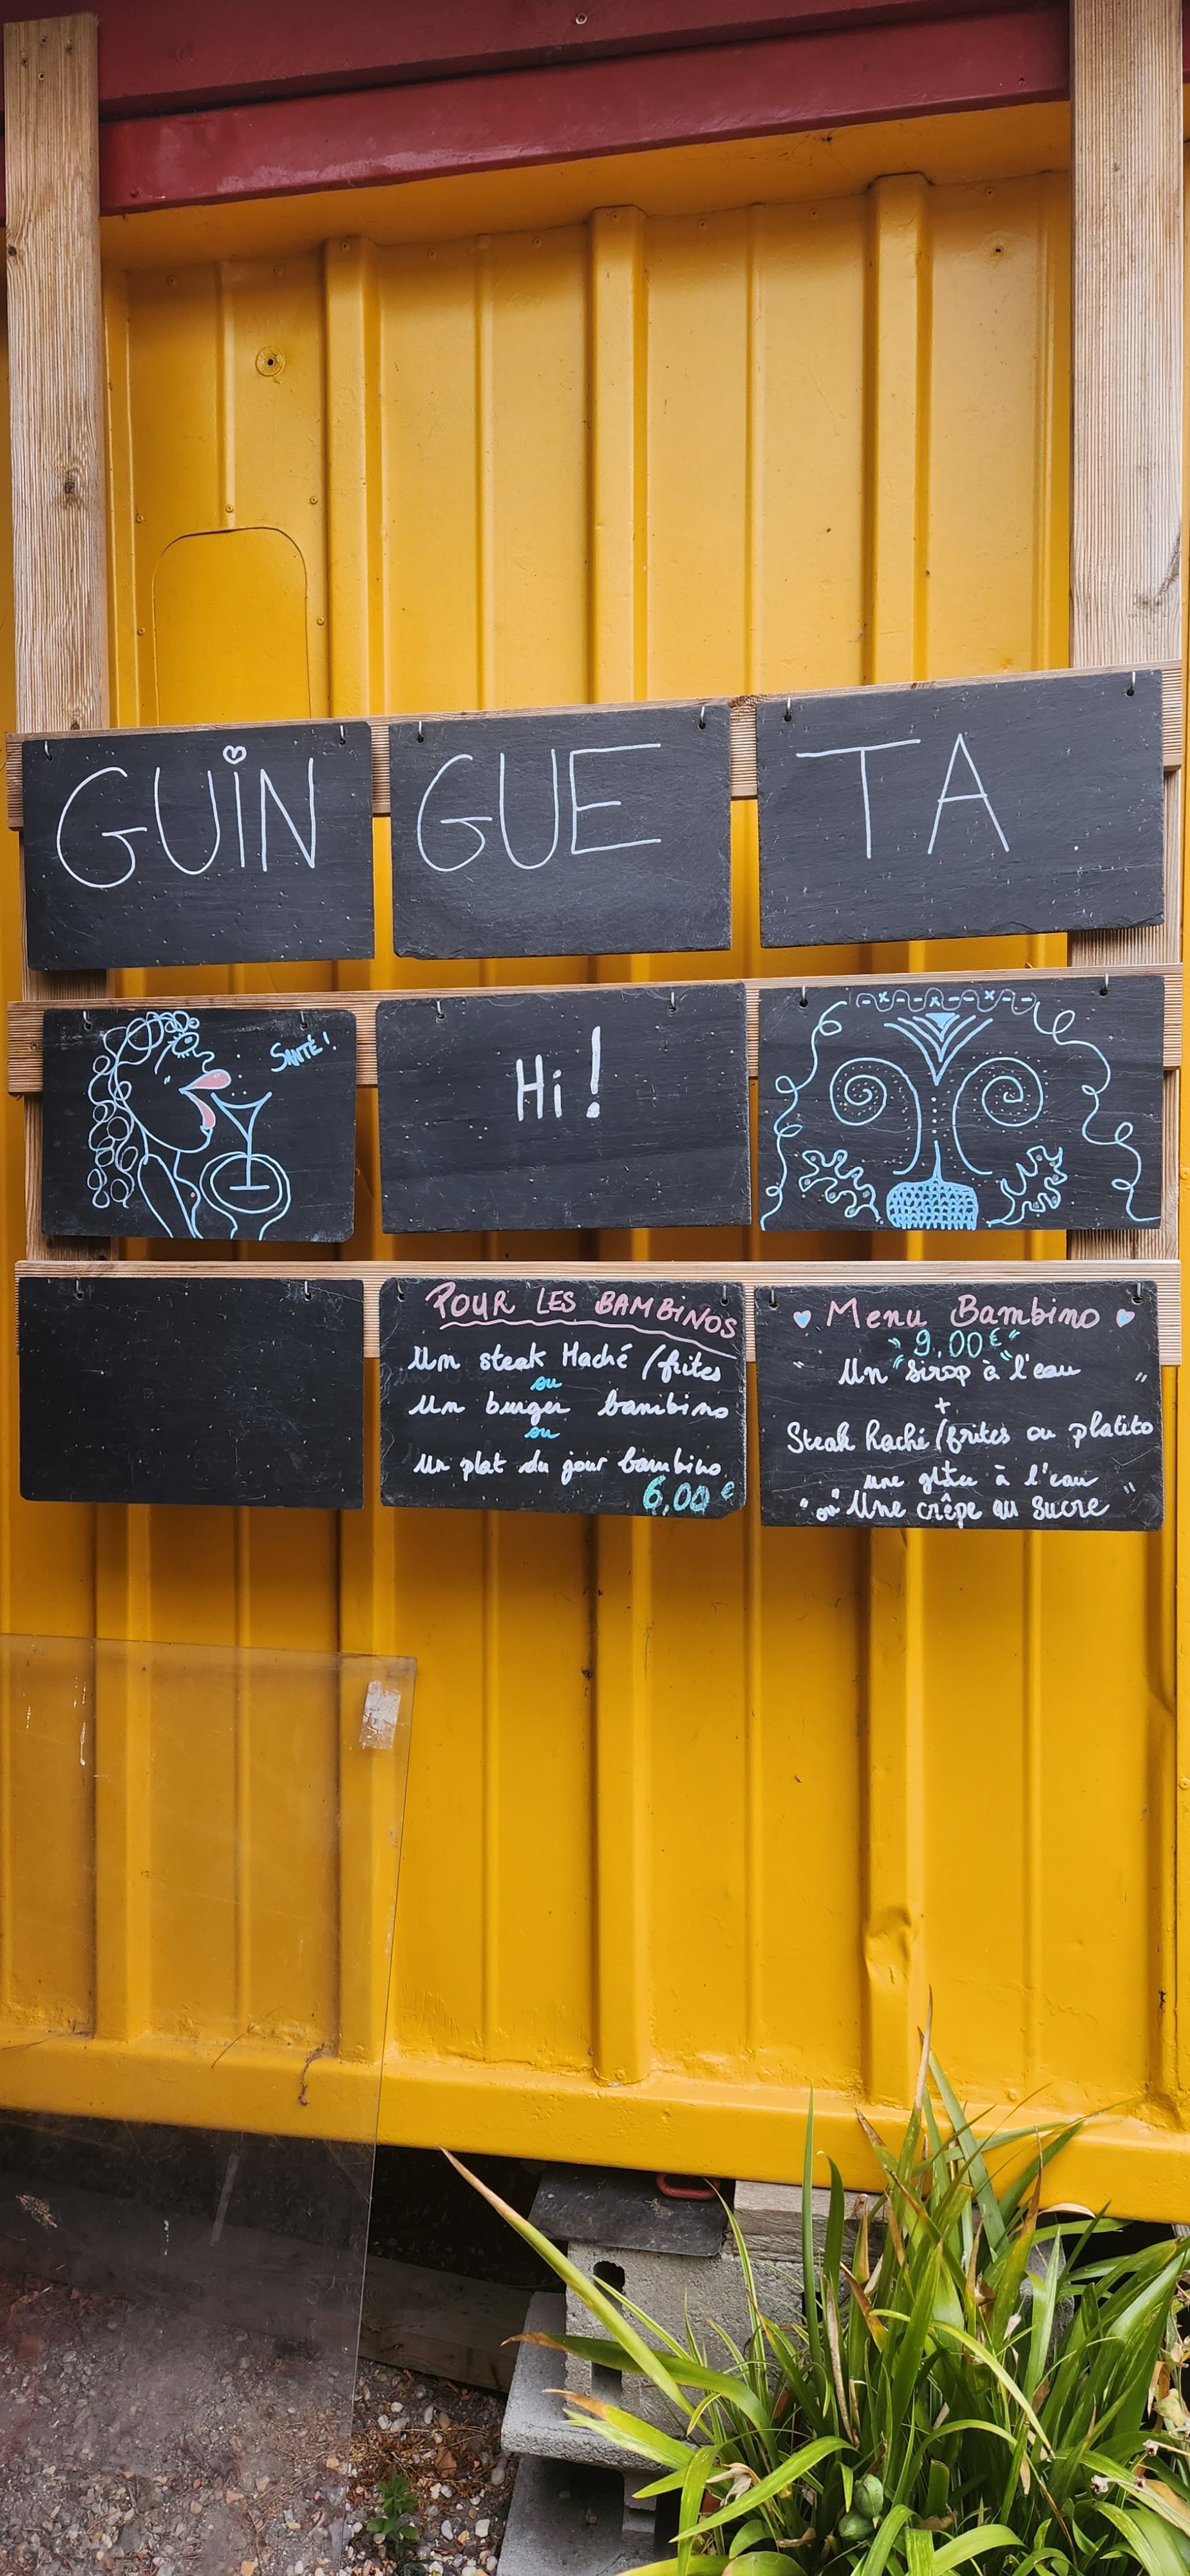 GUiN GUE TA
SANTÉ !
Hi !
POUR LES BAMBINOS
Un steak Haché / frites
ou
Un burger bambino
ou
Un plat du jour bambino
6,00 €
Menu Bambino
9,00 €
Un sirop à l'eau
+
Steak haché / frites ou platito
une glace à l'eau
"ou" Une crêpe au sucre